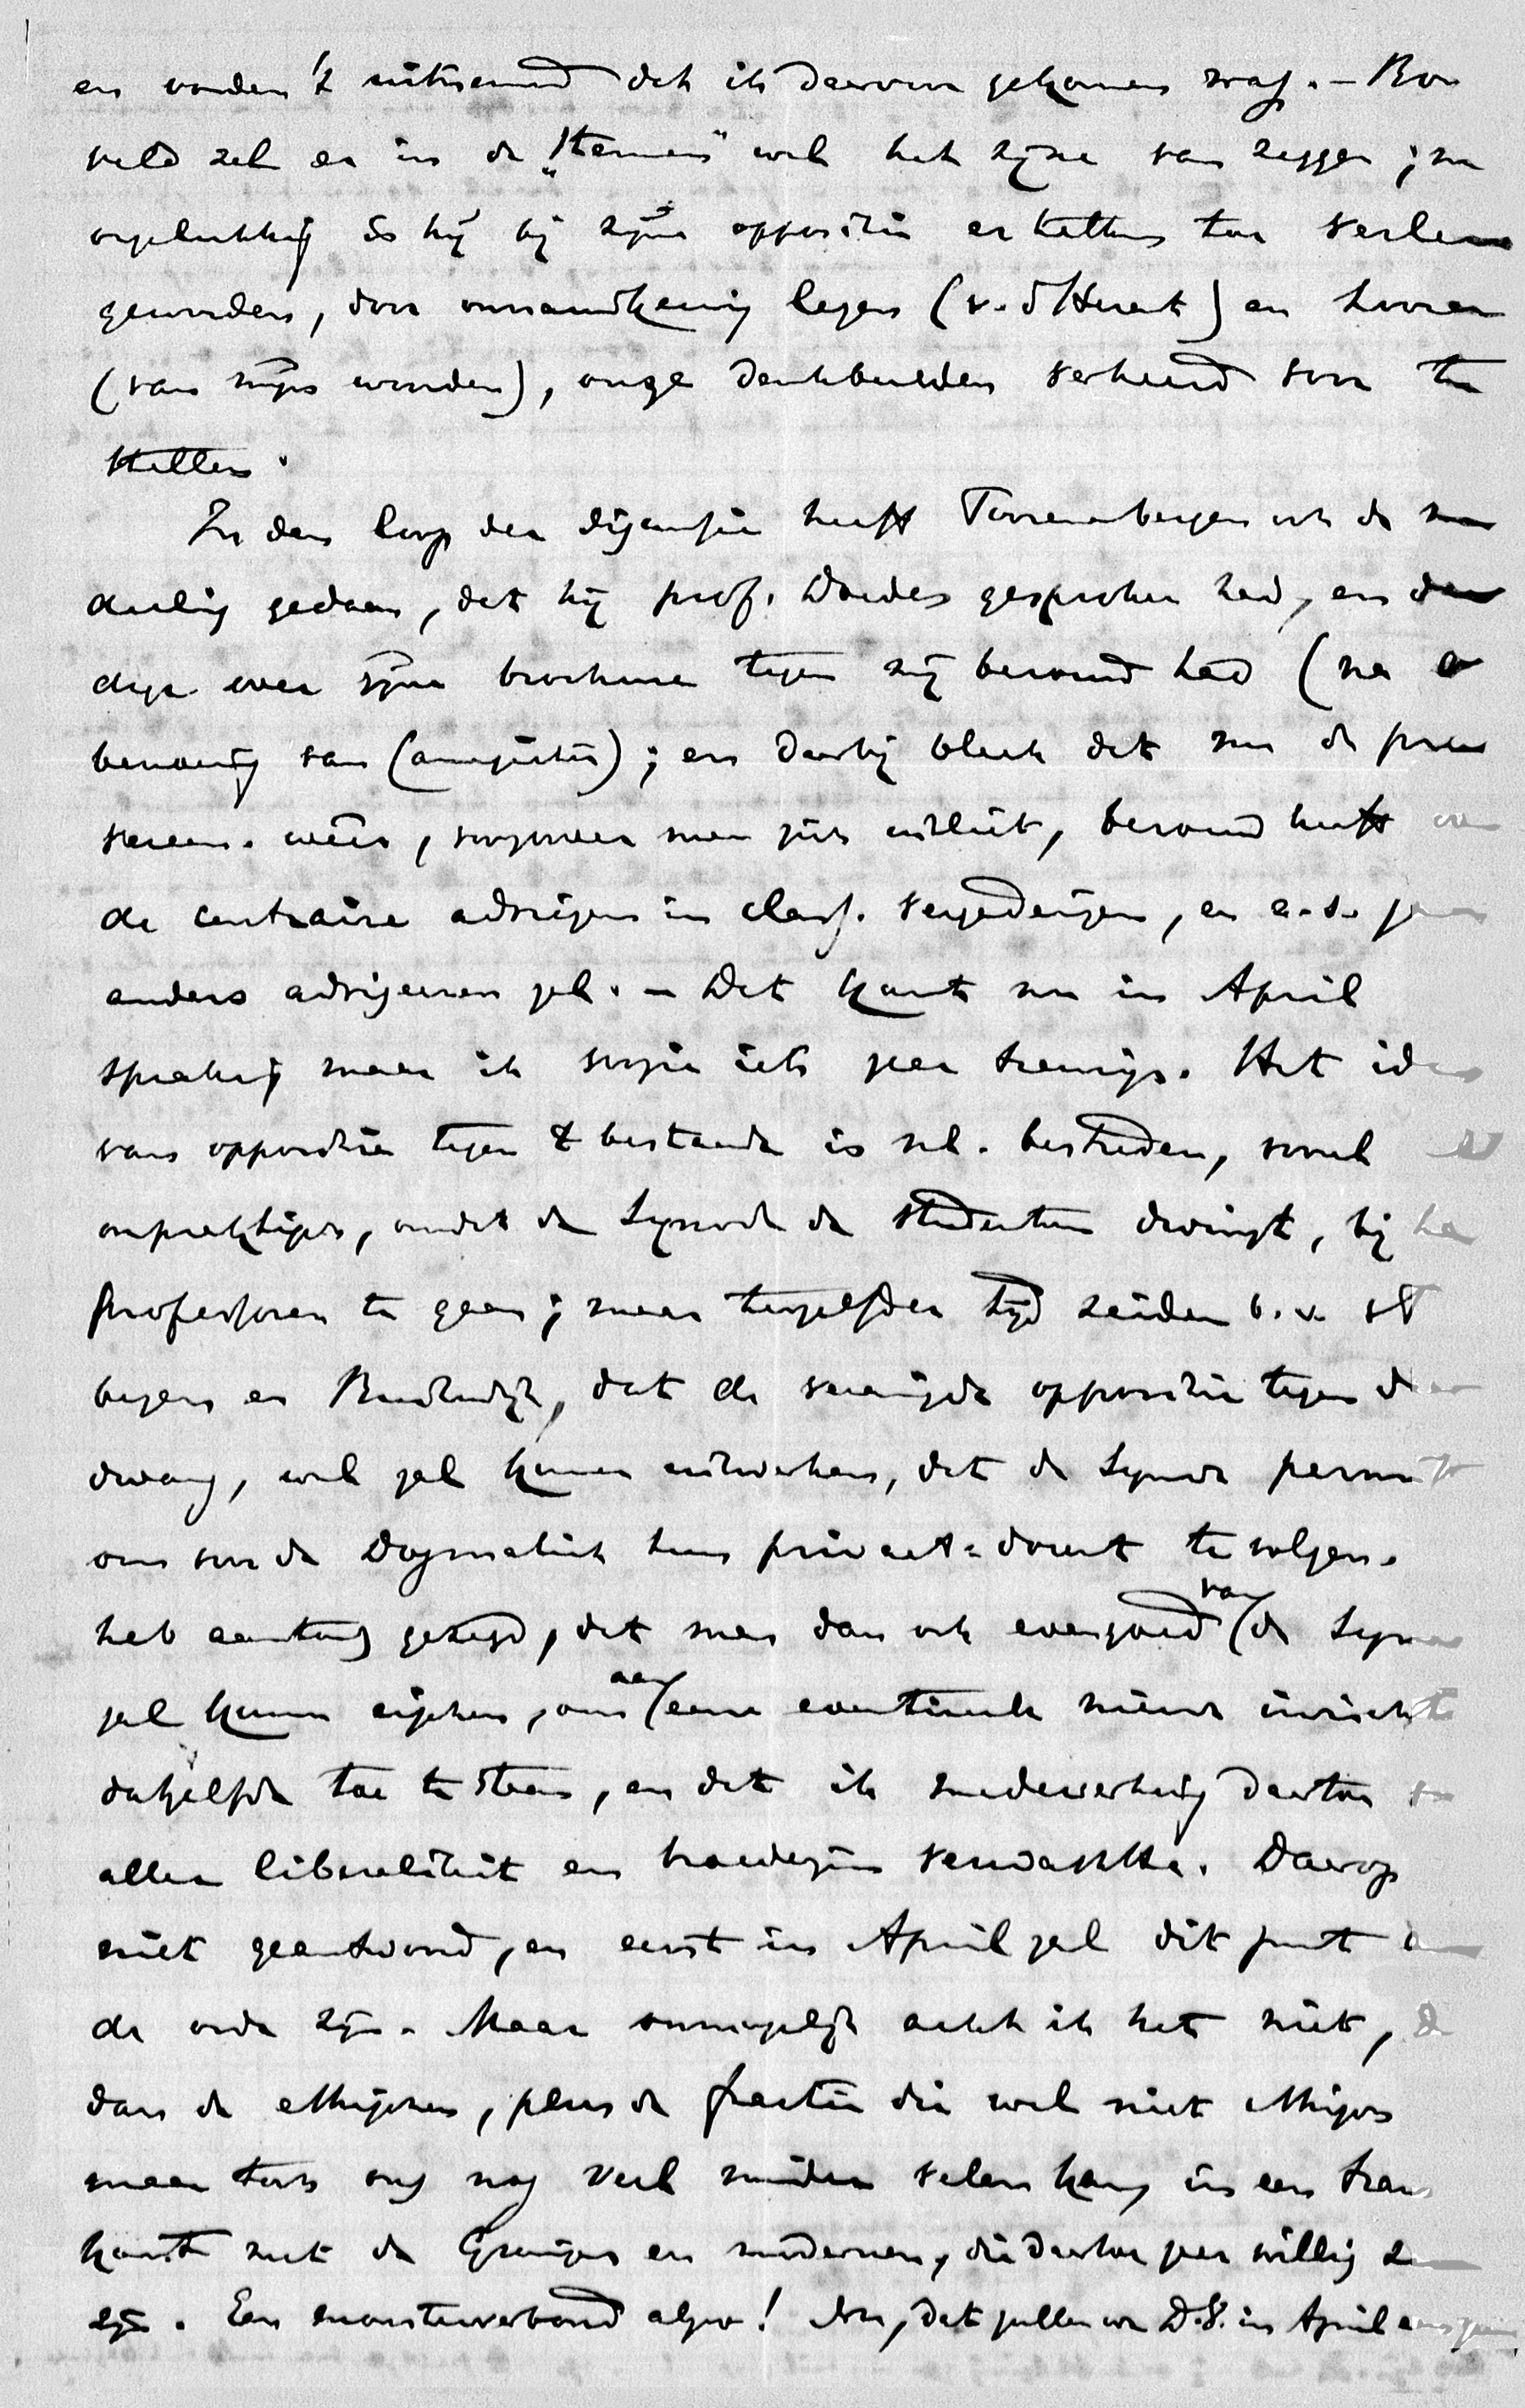 en vonden 't uitnemend dat ik daarvoor gekomen was. – Bron
veld zal er in de „Stemmen" wel het zijne van zeggen; maar
ongelukkig is hij bij zijne oppositie er telkens toe verleid
geworden, door onnauwkeurig lezen (v. d Heraut) en hooren
(van mijne woorden), onze denkbeelden verkeerd voor te
stellen.
In den loop der discussie heeft Toorenenbergen ook de me
deeling gedaan, dat hij prof. Doedes gesproken had, en dat
deze over zijne brochure tegen mij berouw had (na de
benoeming van Lamping); en daarbij bleek dat nu de pres
weer, voorzoover men zich uitliet, berouw heeft over
de contraire adviezen in class. vergaderingen, en a. s. jaar
anders adviseeren zal. – Dat komt nu in April
sprake; maar ik voorzie iets zeer treurigs. Het idee
van oppositie tegen 't bestaande is nl. bestreden, vooral als
onpraktisch, omdat de Synode de studenten dwingt, bij hare
professoren te gaan; maar terzelfder tijd zeiden b.v. v T
bergen en Buitendijk, dat de vereenigde oppositie tegen dien
dwang, wel zal kunnen uitwerken, dat de Synode permitt
om voor de Dogmatiek hun privaat-docent te volgen.
heb aanstonds gezegd, dat men dan ook evengoed van de Synode
zal kunnen eischen, om aan eene eventueele nieuwe inricht
datzelfde toe te staan, en dat ik medewerking daartoe van
aller liberaliteit en broederzin verwachtte. Daarop
niet geantwoord, en eerst in April zal dit punt aan
de orde zijn. Maar onmogelijk acht ik het niet, dat
dan de ethischen, plus de fractie die wel niet ethisch
maar toch ons nog veel minder velen kan, in een trans
komt met de Groningers en modernen, die daartoe zeer willig zullen
zijn. Een monsterverbond alzoo! Nu, dat zullen we D.V. in April eens zien.